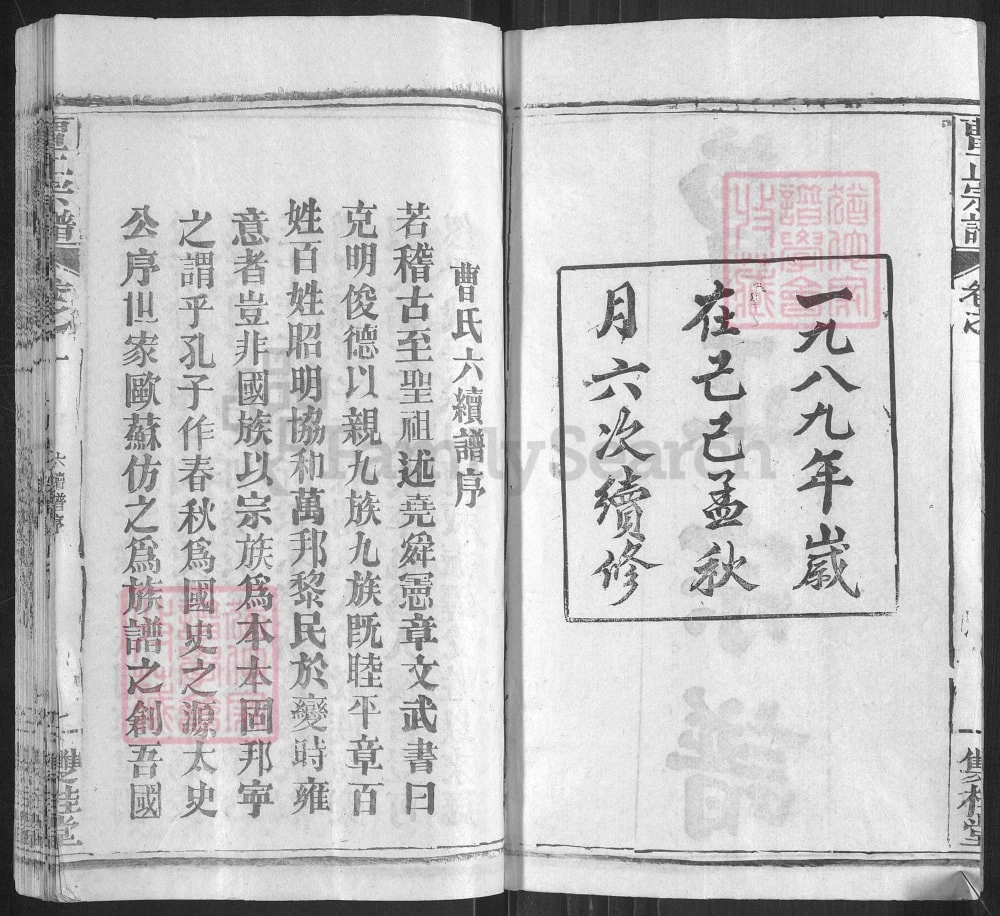 一九八九年歲
在己巳孟秋
月六次續修
曹氏六續譜序
若稽古至聖祖述堯舜憲章文武書曰
克明俊德以親九族九族既睦平章百
姓百姓昭明協和萬邦黎民於變時雍
意者豈非國族以宗族爲本本固邦寧
之謂乎孔子作春秋爲國史之源太史
公序世家歐蘇仿之爲族譜之創吾國
六續譜序
雙桂堂
FamilySearch